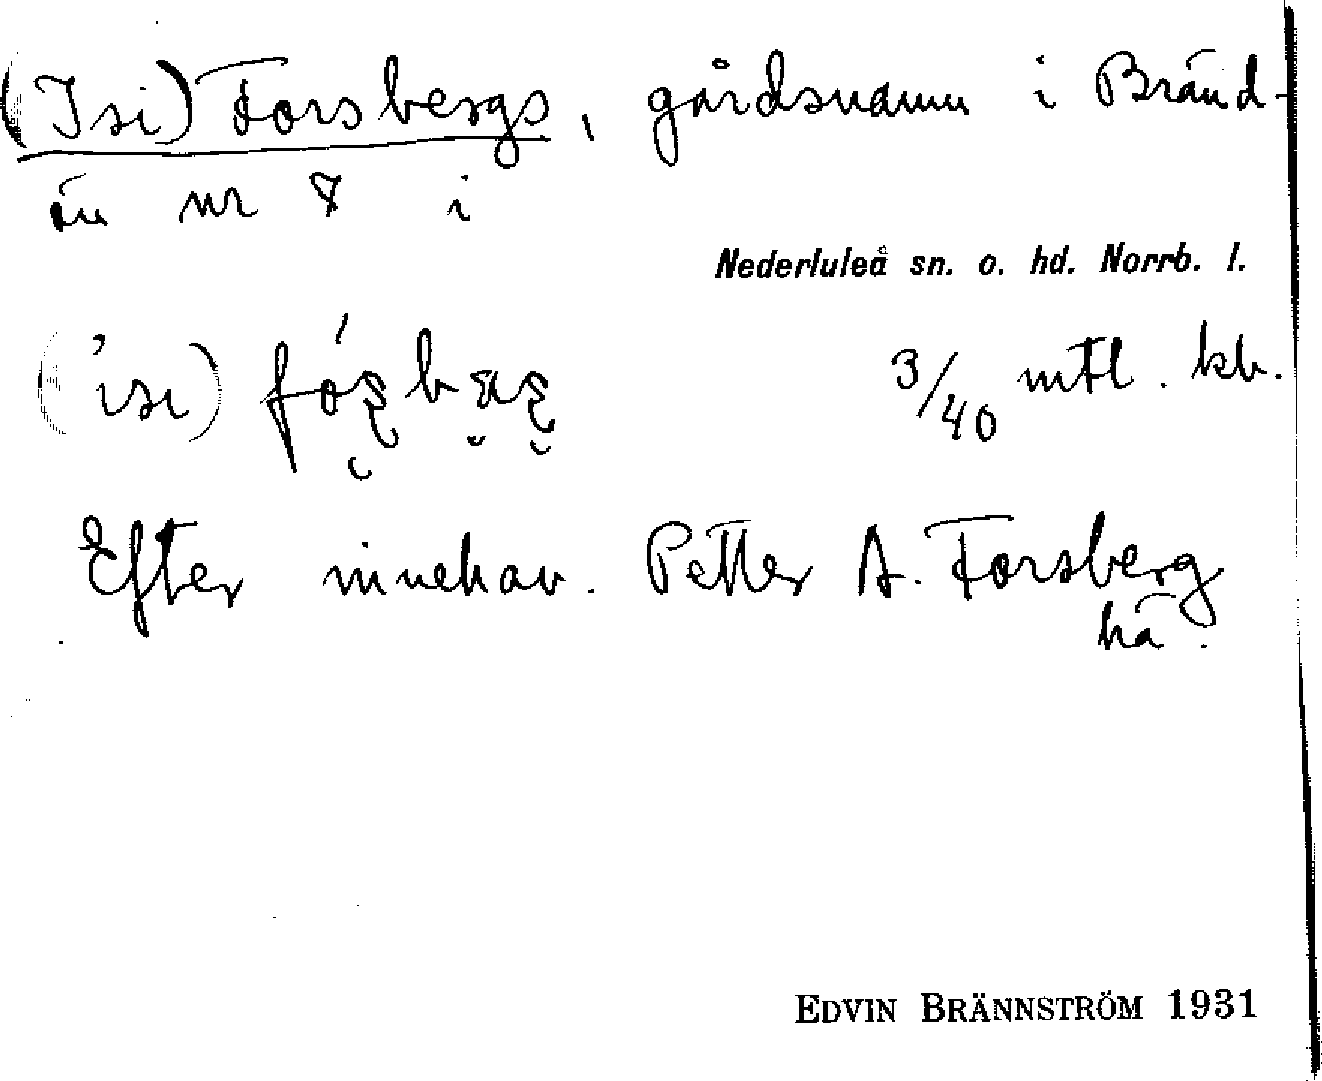 (Isi) Forsbergs, gårdsnamn i Bränd-
ön nr 8 i
Nederluleå sn. o. hd. Norrb. l.
('isi)
3/40 mtl. kb.
Efter innehav. Petter A. Forsberg
hä.
EDVIN BRÄNNSTRÖM 1931